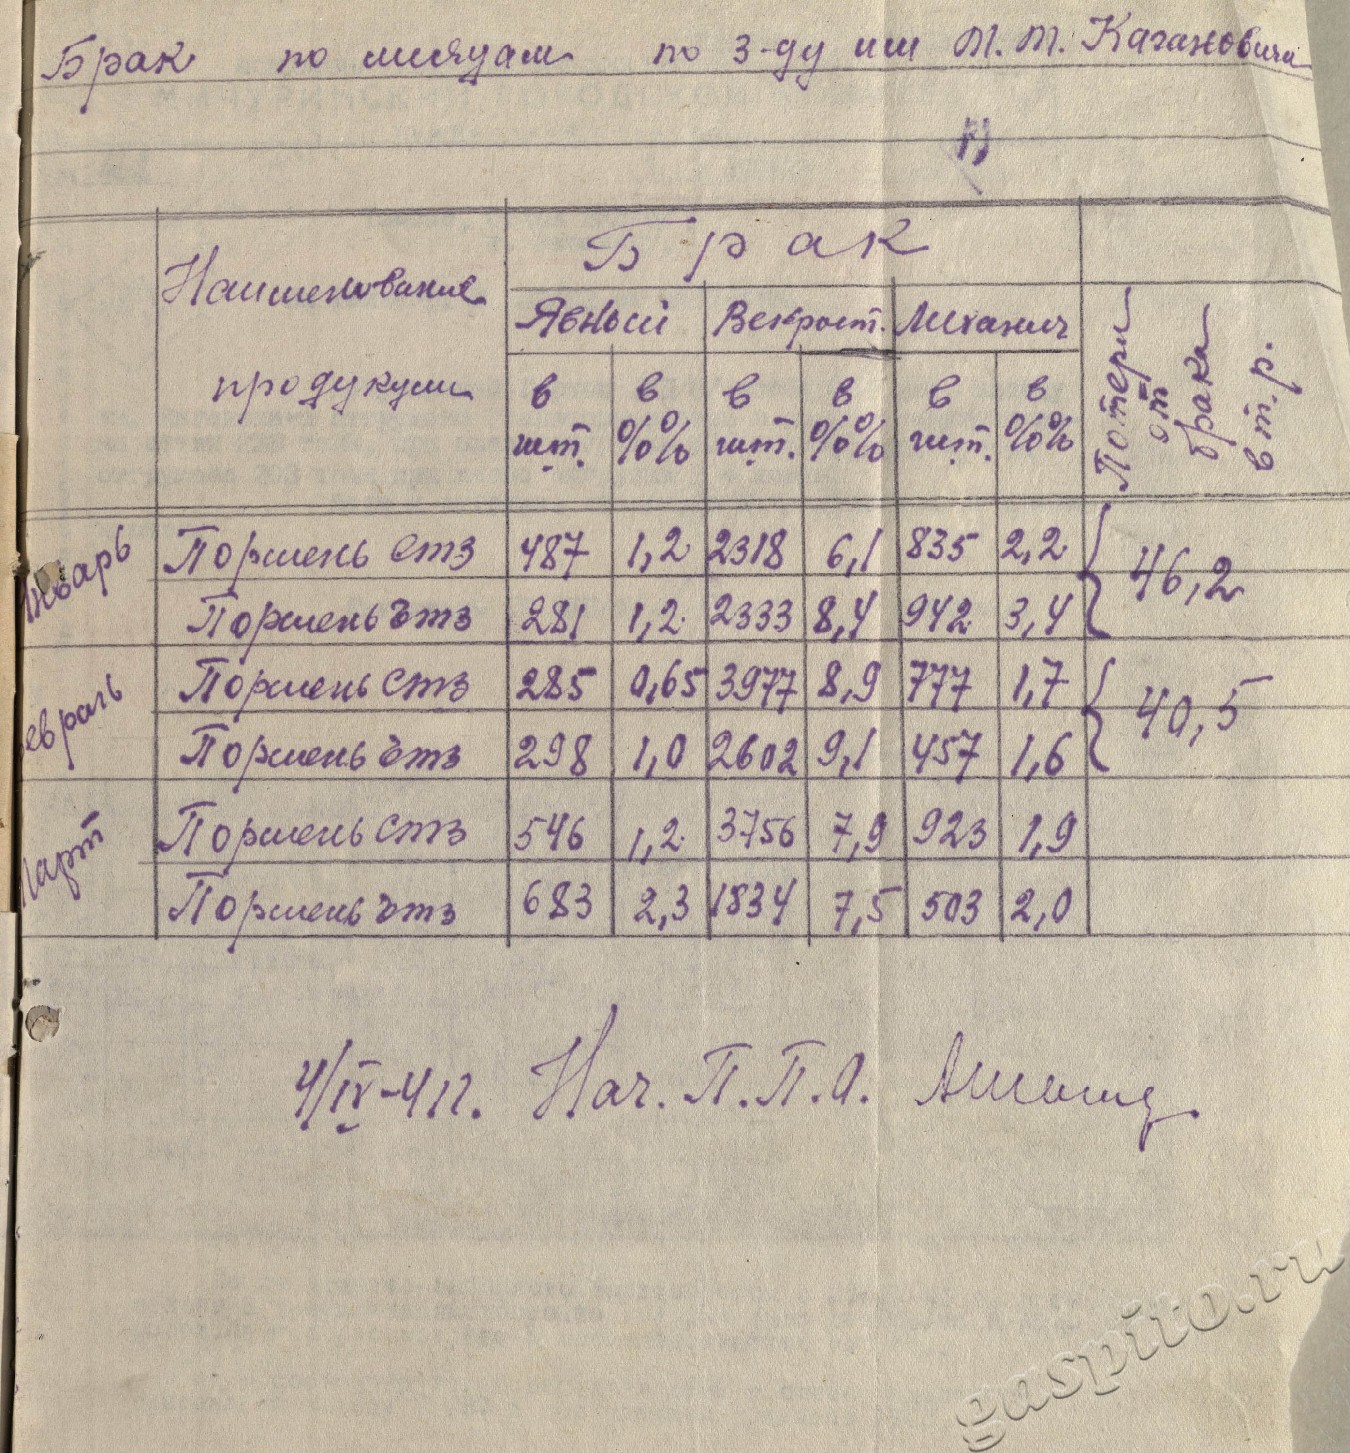 Брак по месяцам по З-ду им М. М. Кагановича
Наименование продукции
Брак
Явный Вскрыт. Механич
Потери от брака в т. р.
в шт. в %% в шт. в %% в шт. в %%
Январь Поршень СТЗ 487 1,2 2318 6,1 835 2,2 46,2
Поршень ЧТЗ 281 1,2 2333 8,4 942 3,4
евраль Поршень СТЗ 285 0,65 3977 8,9 777 1,7 40,5
Поршень ЧТЗ 298 1,0 2602 9,1 457 1,6
Март Поршень СТЗ 546 1,2 3756 7,9 923 1,9
Поршень ЧТЗ 683 2,3 1834 7,5 503 2,0
4/IV-41г. Нач. П.П.О.
gaspito.ru